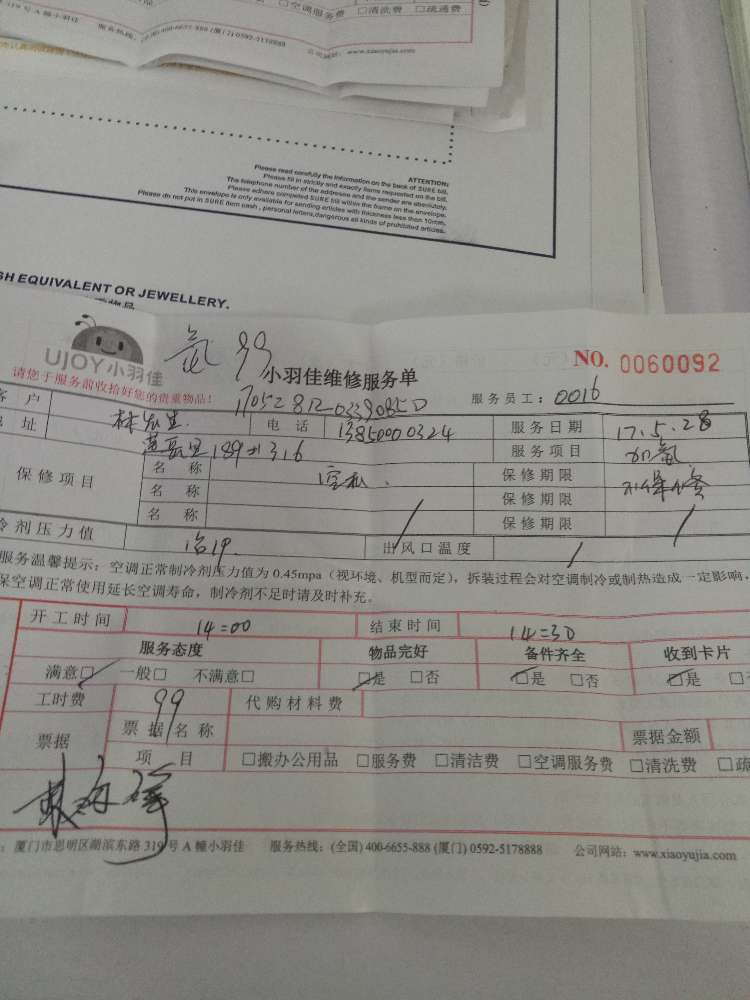 319号A幢小羽佳 服务热线：(全国)400-6655-888 (厦门) 0592-5178888 公司网站：www.xiaoyujia.com
□空调服务费 □清洗费 □疏通费
ATTENTION:
Please read carefully the information on the back of SURE bill.
Please fill in strictly and exactly items requested on the bill.
The telephone number of the addressee and the sender are absolutely.
Please adhere competed SURE bill within the frame on the envelope.
This envelope is only available for sending articles with thickness less than 10mm.
Please do not put in SURE item cash , personal letters,dangerous all kinds of prohibited articles.
SH EQUIVALENT OR JEWELLERY.
UJOY小羽佳
氟 99
小羽佳维修服务单
NO. 0060092
请您于服务前收拾好您的贵重物品！
服务员工：0016
客户 林先生 电话 13850000324 服务日期 17.5.28
址 189 316 服务项目 加氟
保修项目 名称 空机 保修期限 不保修
名称 保修期限
名称 保修期限
冷剂压力值 出风口温度
服务温馨提示：空调正常制冷剂压力值为 0.45mpa（视环境、机型而定），拆装过程会对空调制冷或制热造成一定影响，
保空调正常使用延长空调寿命，制冷剂不足时请及时补充。
开工时间 14:00 结束时间 14:30
服务态度 物品完好 备件齐全 收到卡片
满意□ 一般□ 不满意□ □是 □否 □是 □否 □是 □
工时费 99 代购材料费
票据 票据名称 票据金额
项目 □搬办公用品 □服务费 □清洁费 □空调服务费 □清洗费 □疏
：厦门市思明区湖滨东路 319 号 A 幢小羽佳 服务热线：(全国) 400-6655-888 (厦门) 0592-5178888 公司网站：www.xiaoyujia.com